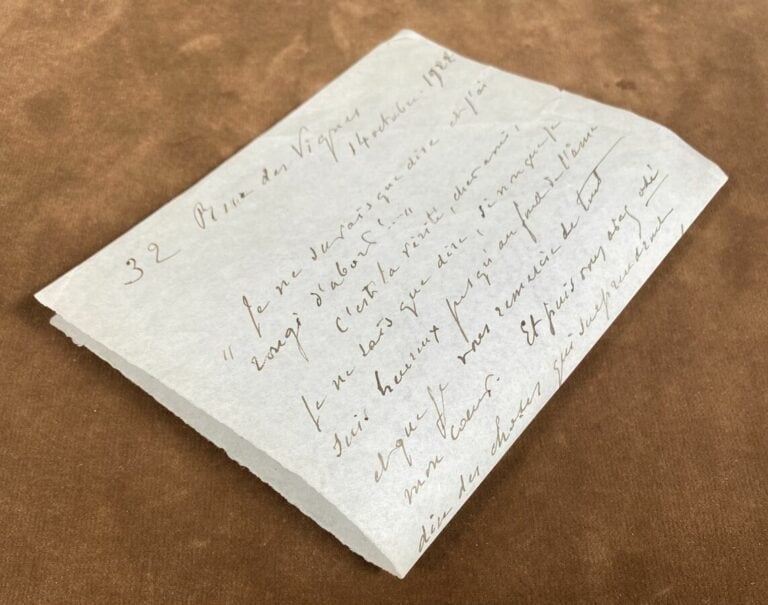 32 Rue des Vignes
14 octobre 1928
"Je ne saurais que dire et j'ai
rougi d'abord..."
C'est la vérité, cher ami,
je ne sais que dire, sinon que je
suis heureux jusqu'au fond de l'âme
et que je vous remercie de tout
mon cœur. Et puis vous avez osé
dire des choses qui surprendront